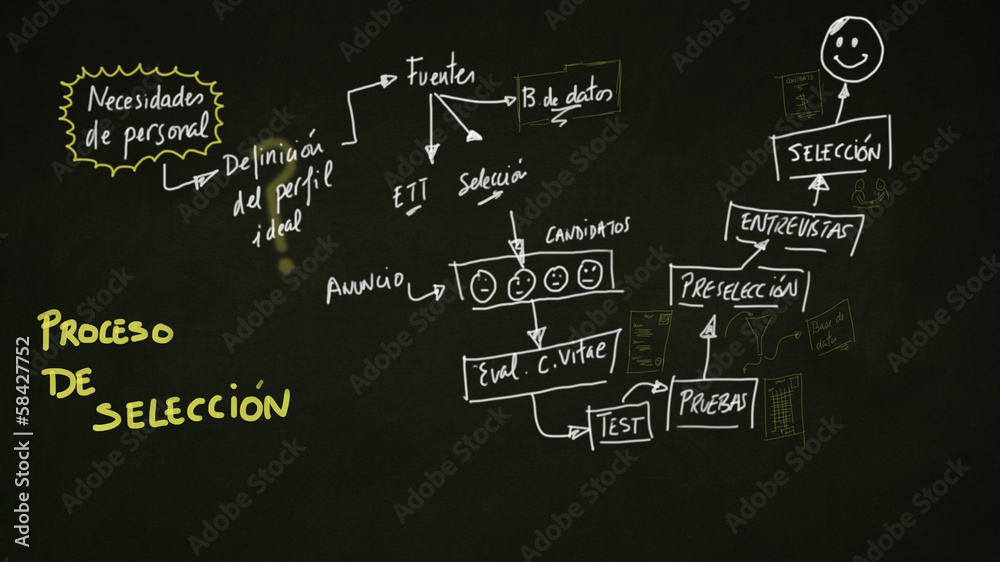 Necesidades
de personal
Definición
del perfil
ideal
?
Fuentes
B. de datos
ETT
Selección
CANDIDATOS
ANUNCIO
Eval. C. Vitae
TEST
PRUEBAS
PRESELECCIÓN
ENTREVISTAS
SELECCIÓN
CONTRATO
$
Base de
datos
PROCESO
DE
SELECCIÓN
Adobe Stock | #58427752
Adobe Stock